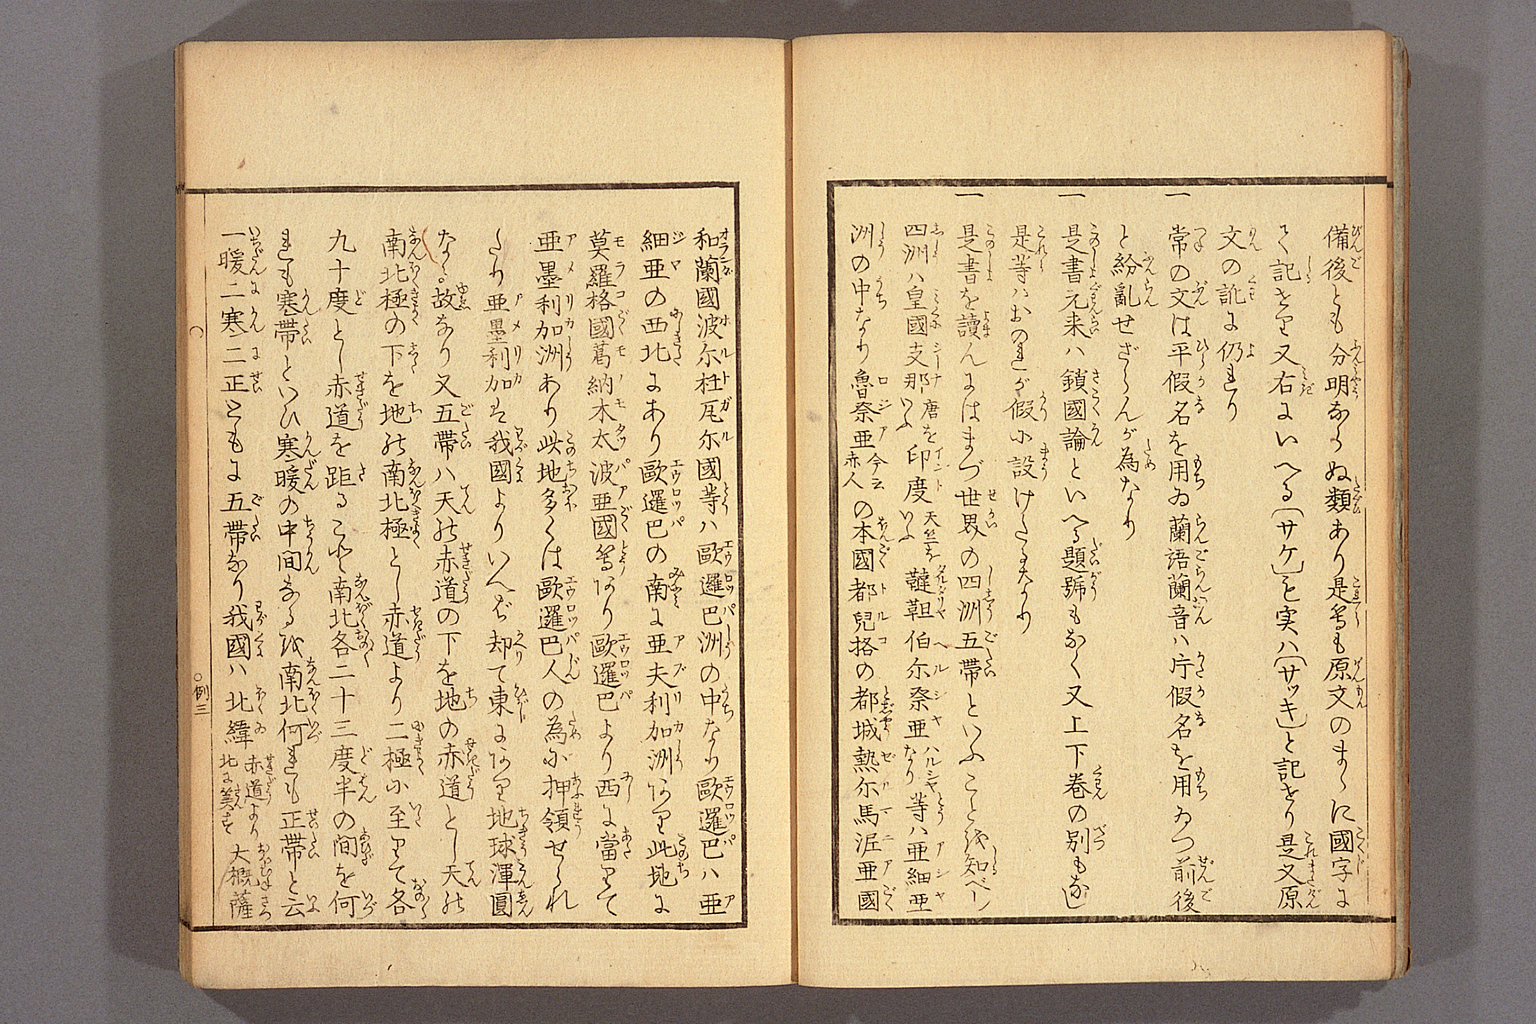 備後とも分明ならぬ類あり是等も原文のまゝに國字に
て記せり又右にいへる「サケ」を実ハ「サッキ」と記せり是又原
文の訛に仍れり
一常の文は平假名を用ゐ蘭語蘭音ハ片假名を用ゐつ前後
と紛亂せざらんが為なり
一是書元来ハ鎖國論といへる題號もなく又上下巻の別もなし
是等ハおのれが假に設けたるなり
一是書を讀んにはまづ世界の四洲五帶といふことを知べし
四洲ハ皇國支那唐をいふ印度天竺をいふ韃靼伯尔奈亜ハルシヤなり等ハ亜細亜
洲の中なり魯奈亜今云赤人の本國都兒格の都城熱尓馬泥亜國
和蘭國波尓杜瓦尓國等ハ歐邏巴洲の中なり歐邏巴ハ亜
細亜の西北にあり歐邏巴の南に亜夫利加洲あり此地に
莫羅格國莫納木太波亜國等あり歐邏巴より西に當りて
亜墨利加洲あり此地多くは歐邏巴人の為に押領せられ
たり亜墨利加は我國よりいへば却て東にあり地球渾圓
なる故なり又五帶ハ天の赤道の下を地の赤道とし天の
南北極の下を地の南北極とし赤道より二極に至りて各
九十度とし赤道を距ること南北各二十三度半の間を何
れも寒帶といひ寒暖の中間なるを南北何れも正帶と云
一暖二寒二正ともに五帶なり我國ハ北緯赤道より北に算す大概薩
〇例三